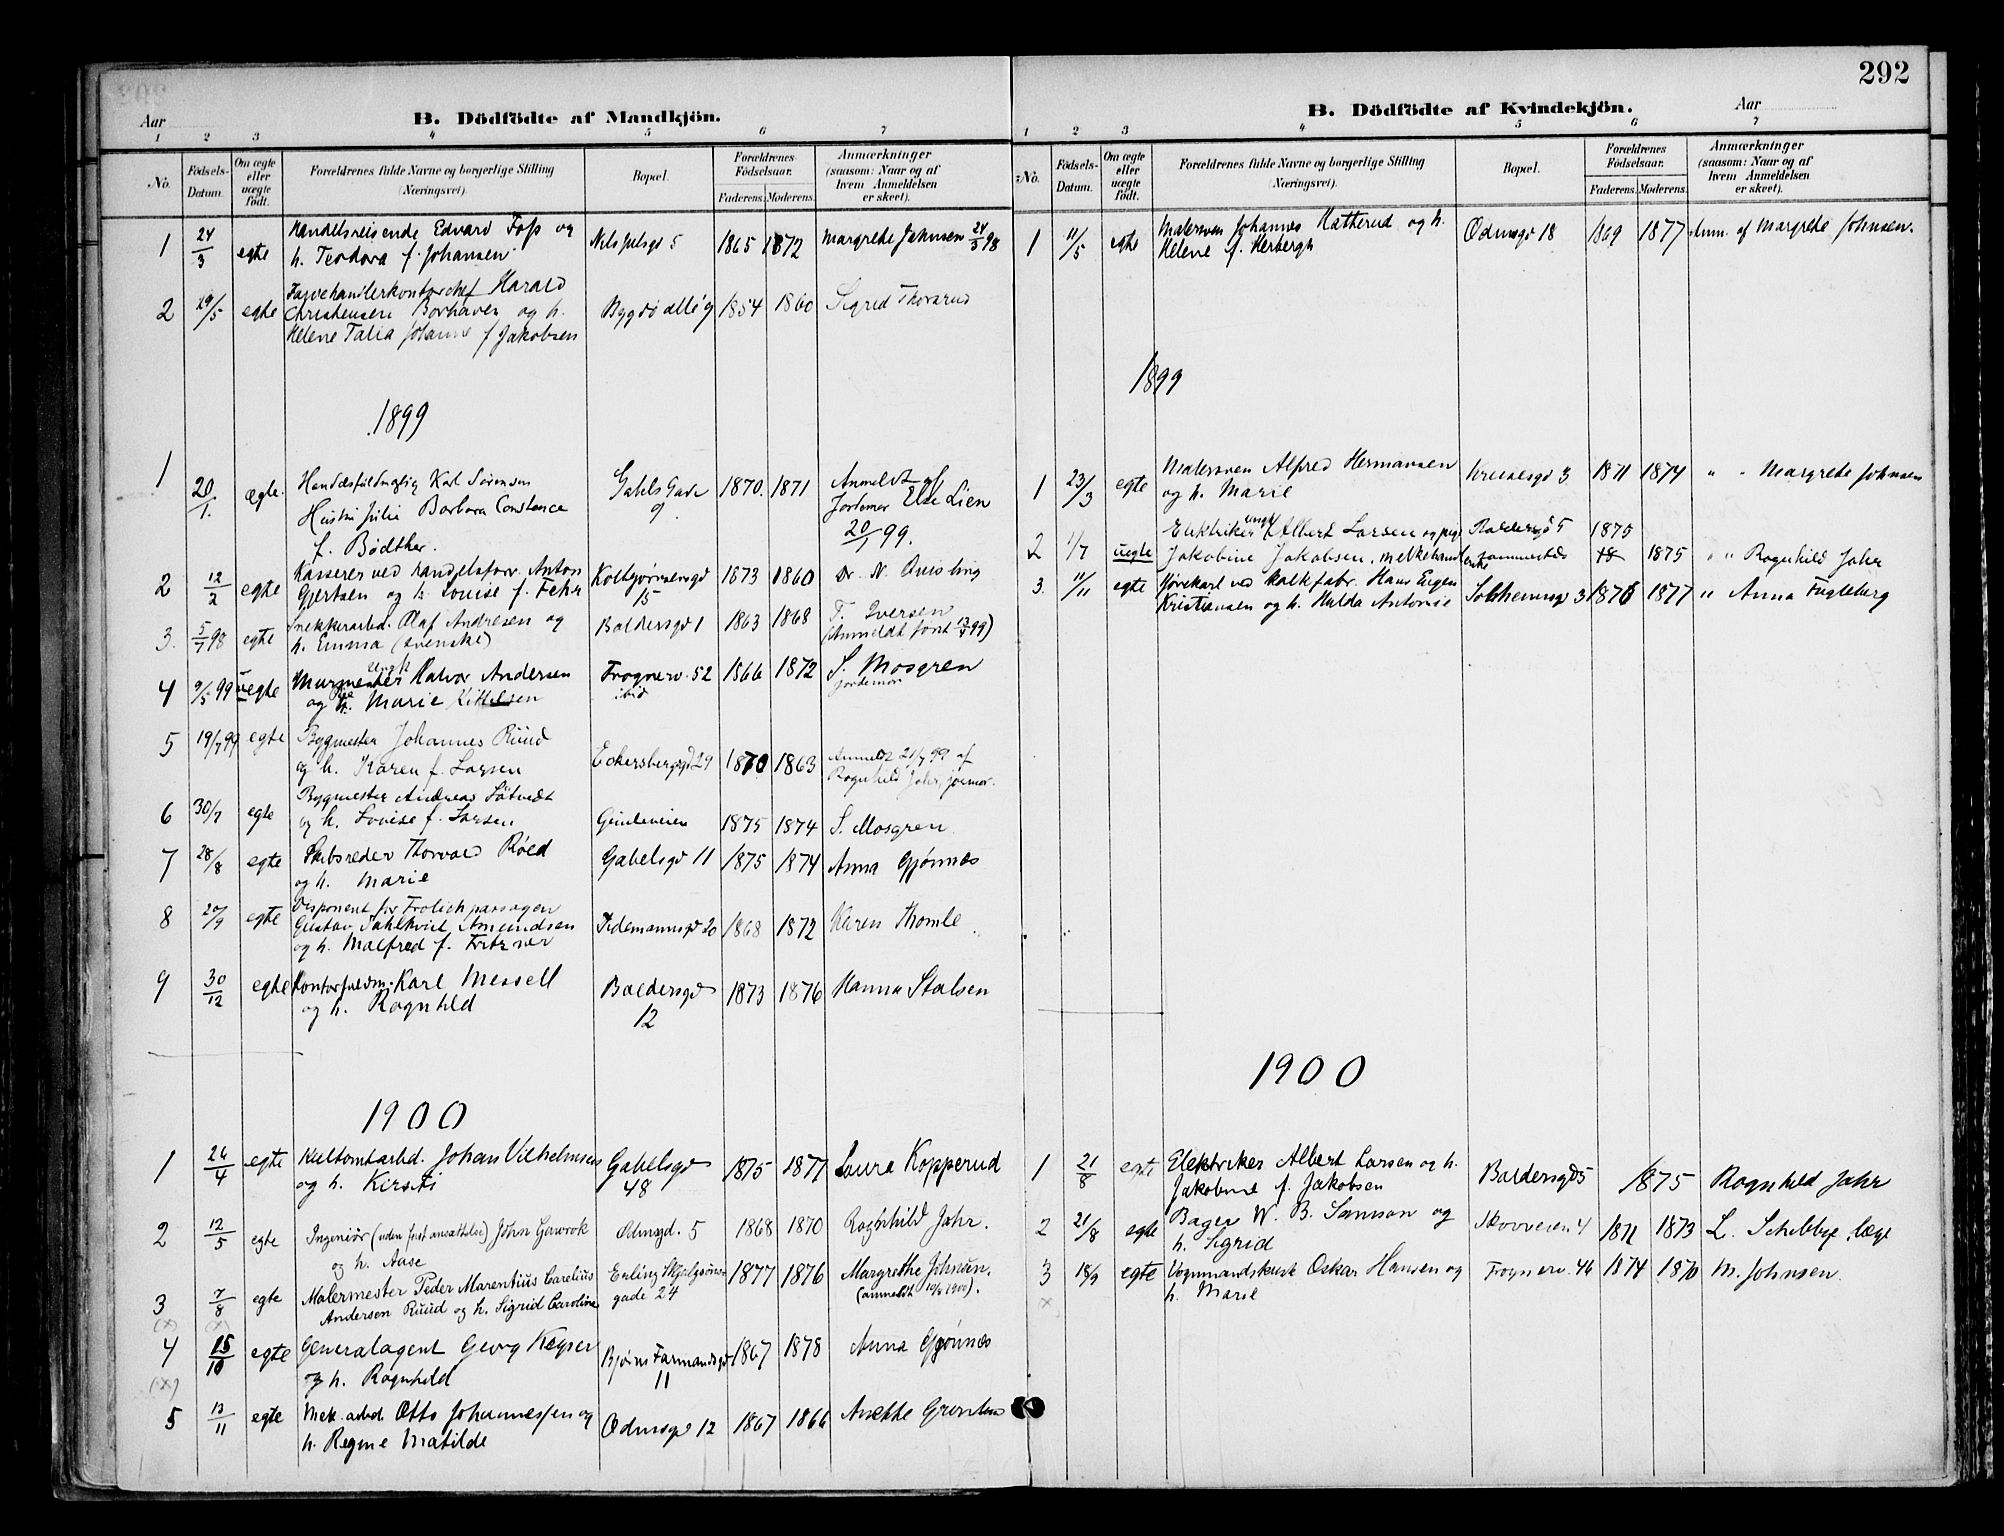 292
Aar
B. Dödfödte af Mandkjön.
1 2 3 4 5 6 7
No.
Födsels-Datum.
Om ægte eller uægte födt.
Forældrenes fulde Navne og borgerlige Stilling (Næringsvei).
Bopæl.
Forældrenes Födselsaar.
Faderens. Moderens.
Anmærkninger (saasom: Naar og af hvem Anmeldelsen er skeet).
1 24/3 egte Handelsreisende Edvard Foss og Nils Juelsgd 5 1865 1872 Margrete Johnsen 24/3 98
h. Teodora f. Johansen
2 29/5 egte Harald Bygdø allé 9 1854 1860 Sigrid Thorsrud
Christensen Borhaven og h.
Helene Talia Johanne f Jakobsen
1899
1 20/1. ægte. Karl Sörensen Gabels Gade 9 1870. 1871 Anmeldt af
Hustru Julie Barbara Constance Jordemor Else Lien
f. Bödtker. 20/1 99.
2 12/2 egte Kasserer ved handelsforr. Anton Kolbjørnsensgd 15 1873 1860 Dr. N. Quisling
Gjertsen og h. Louise f. Fehr
3. 5/7 98 egte Snekkerarbd. Olaf Andresen og Baldersgd 1 1863 1868 T. Iversen
h. Emma (svenske) (Anmeldt først 13/4 99)
4 9/5 99 uegte Murmester ungk Halvor Andersen Frognerv. 52 1866 1872 S. Mosgren
og pie Marie Kittelsen ibid jordemor
5 19/7 99 egte Bygmester Johannes Ruud Eckersbergsgd 29 1870 1863 Anmeldt 21/7 99 af
og h. Karen f. Larsen Ragnhild Jahr, jormor.
6 30/7 egte Bygmester Andreas Løtvedt
og h. Lovise f. Larsen Gimleveien 1875 1874 S. Mosgren
7 28/8 egte Skibsreder Thorvald Röed Gabelsgd 11 1875 1874 Anna Gjønnæs
og h. Marie
8 20/9 egte Disponent for Frölichpassagen
Gustav Amundsen Tidemannsgd 20 1868 1872 Karen Thomle
og h. Malfred f. Fritzner
9 30/12 egte Kontorfuldm. Karl Messell Baldersgd 12 1873 1876 Hanna Stalsen
og h. Ragnhild
1900
1 26/4 egte Kultomtarbd. Johan Vilhelmsen Gabelsgd 48 1875 1877 Laura Kopperud
og h. Kirsti
2 12/5 egte Ingeniör (uden fast ansættelse) John Odinsgd. 5 1868 1870 Ragnhild Jahr.
og h. Aase
3 7/8 egte Malermester Peder Marentius Carelius Erling Skjalgsöns- 1877 1876 Margrethe Johnsen.
(x) (x) Andersen Ruud og h. Sigrid Caroline gade 24 (anmeldt 10/8 1900).
4 15/10 egte Generalagent Georg Keyser Bjørn Farmandsgd 11 1867 1878 Anna Gjønnæs
(x) og h. Ragnhild
5 13/11 egte Mek. arbd. Otto Johannessen og Odinsgd 12 1867 1866 Anette
h. Regine Matilde
B. Dödfödte af Kvindekjön.
Aar
1 2 3 4 5 6 7
No.
Födsels-Datum.
Om ægte eller uægte födt.
Forældrenes fulde Navne og borgerlige Stilling (Næringsvei).
Bopæl.
Forældrenes Födselsaar.
Faderens. Moderens.
Anmærkninger (saasom: Naar og af hvem Anmeldelsen er skeet).
1 11/5 egte Malersven Johannes Hatterud og h. Odinsgd 18 1869 1877 Anm. af Margrete Johnsen.
Helene f. Herbergh
1899
1 23/3 egte Malersven Alfred Hermansen Krusesgd 3 1871 1874 " " Margrete Johnsen
og h. Marie
2 1/7 uegte Elektriker ungk Albert Larsen og pige Baldersgd 5 1875
Jakobine Jakobsen, melkehandlerske sammesteds 18 1875 " " Ragnhild Jahr
3. 11/11 egte Kjørekarl ved kalkfabr. Hans Eugen Solheimsgd 3 1876 1877 " Anna Fugleberg
Kristiansen og h. Hulda Antonie
1900
1 21/8 egte Elektriker Albert Larsen og h. Baldersgd 5 1875 Ragnhild Jahr
Jakobine f. Jakobsen
2 21/8 egte Bager W. B. Samson og Skovveien 4 1871 1873 L. Schibbye, læge
h. Sigrid
3 18/9 egte Vognmandskusk Oskar Hansen og Frognerv. 46 1874 1870 M. Johnsen.
x h. Marie